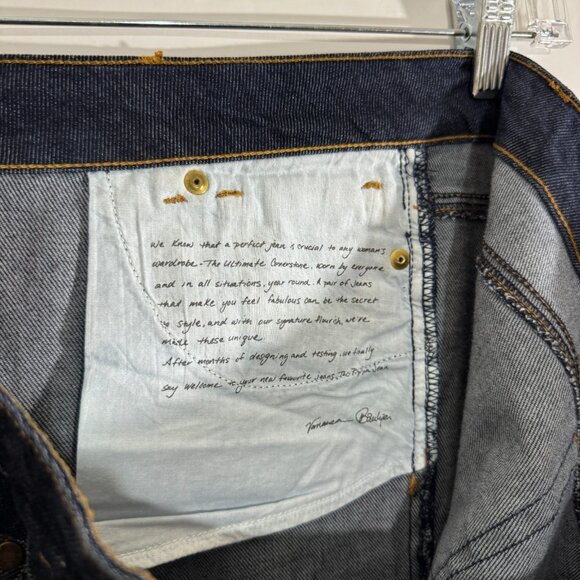 We know that a perfect jean is crucial to any woman's
wardrobe - The Ultimate Cornerstone, worn by everyone
and in all situations, year round. A pair of jeans
that make you feel fabulous can be the secret
to style, and with our signature flourish, we've
made these unique.
After months of designing and testing, we finally
say welcome to your new favorite jeans, The